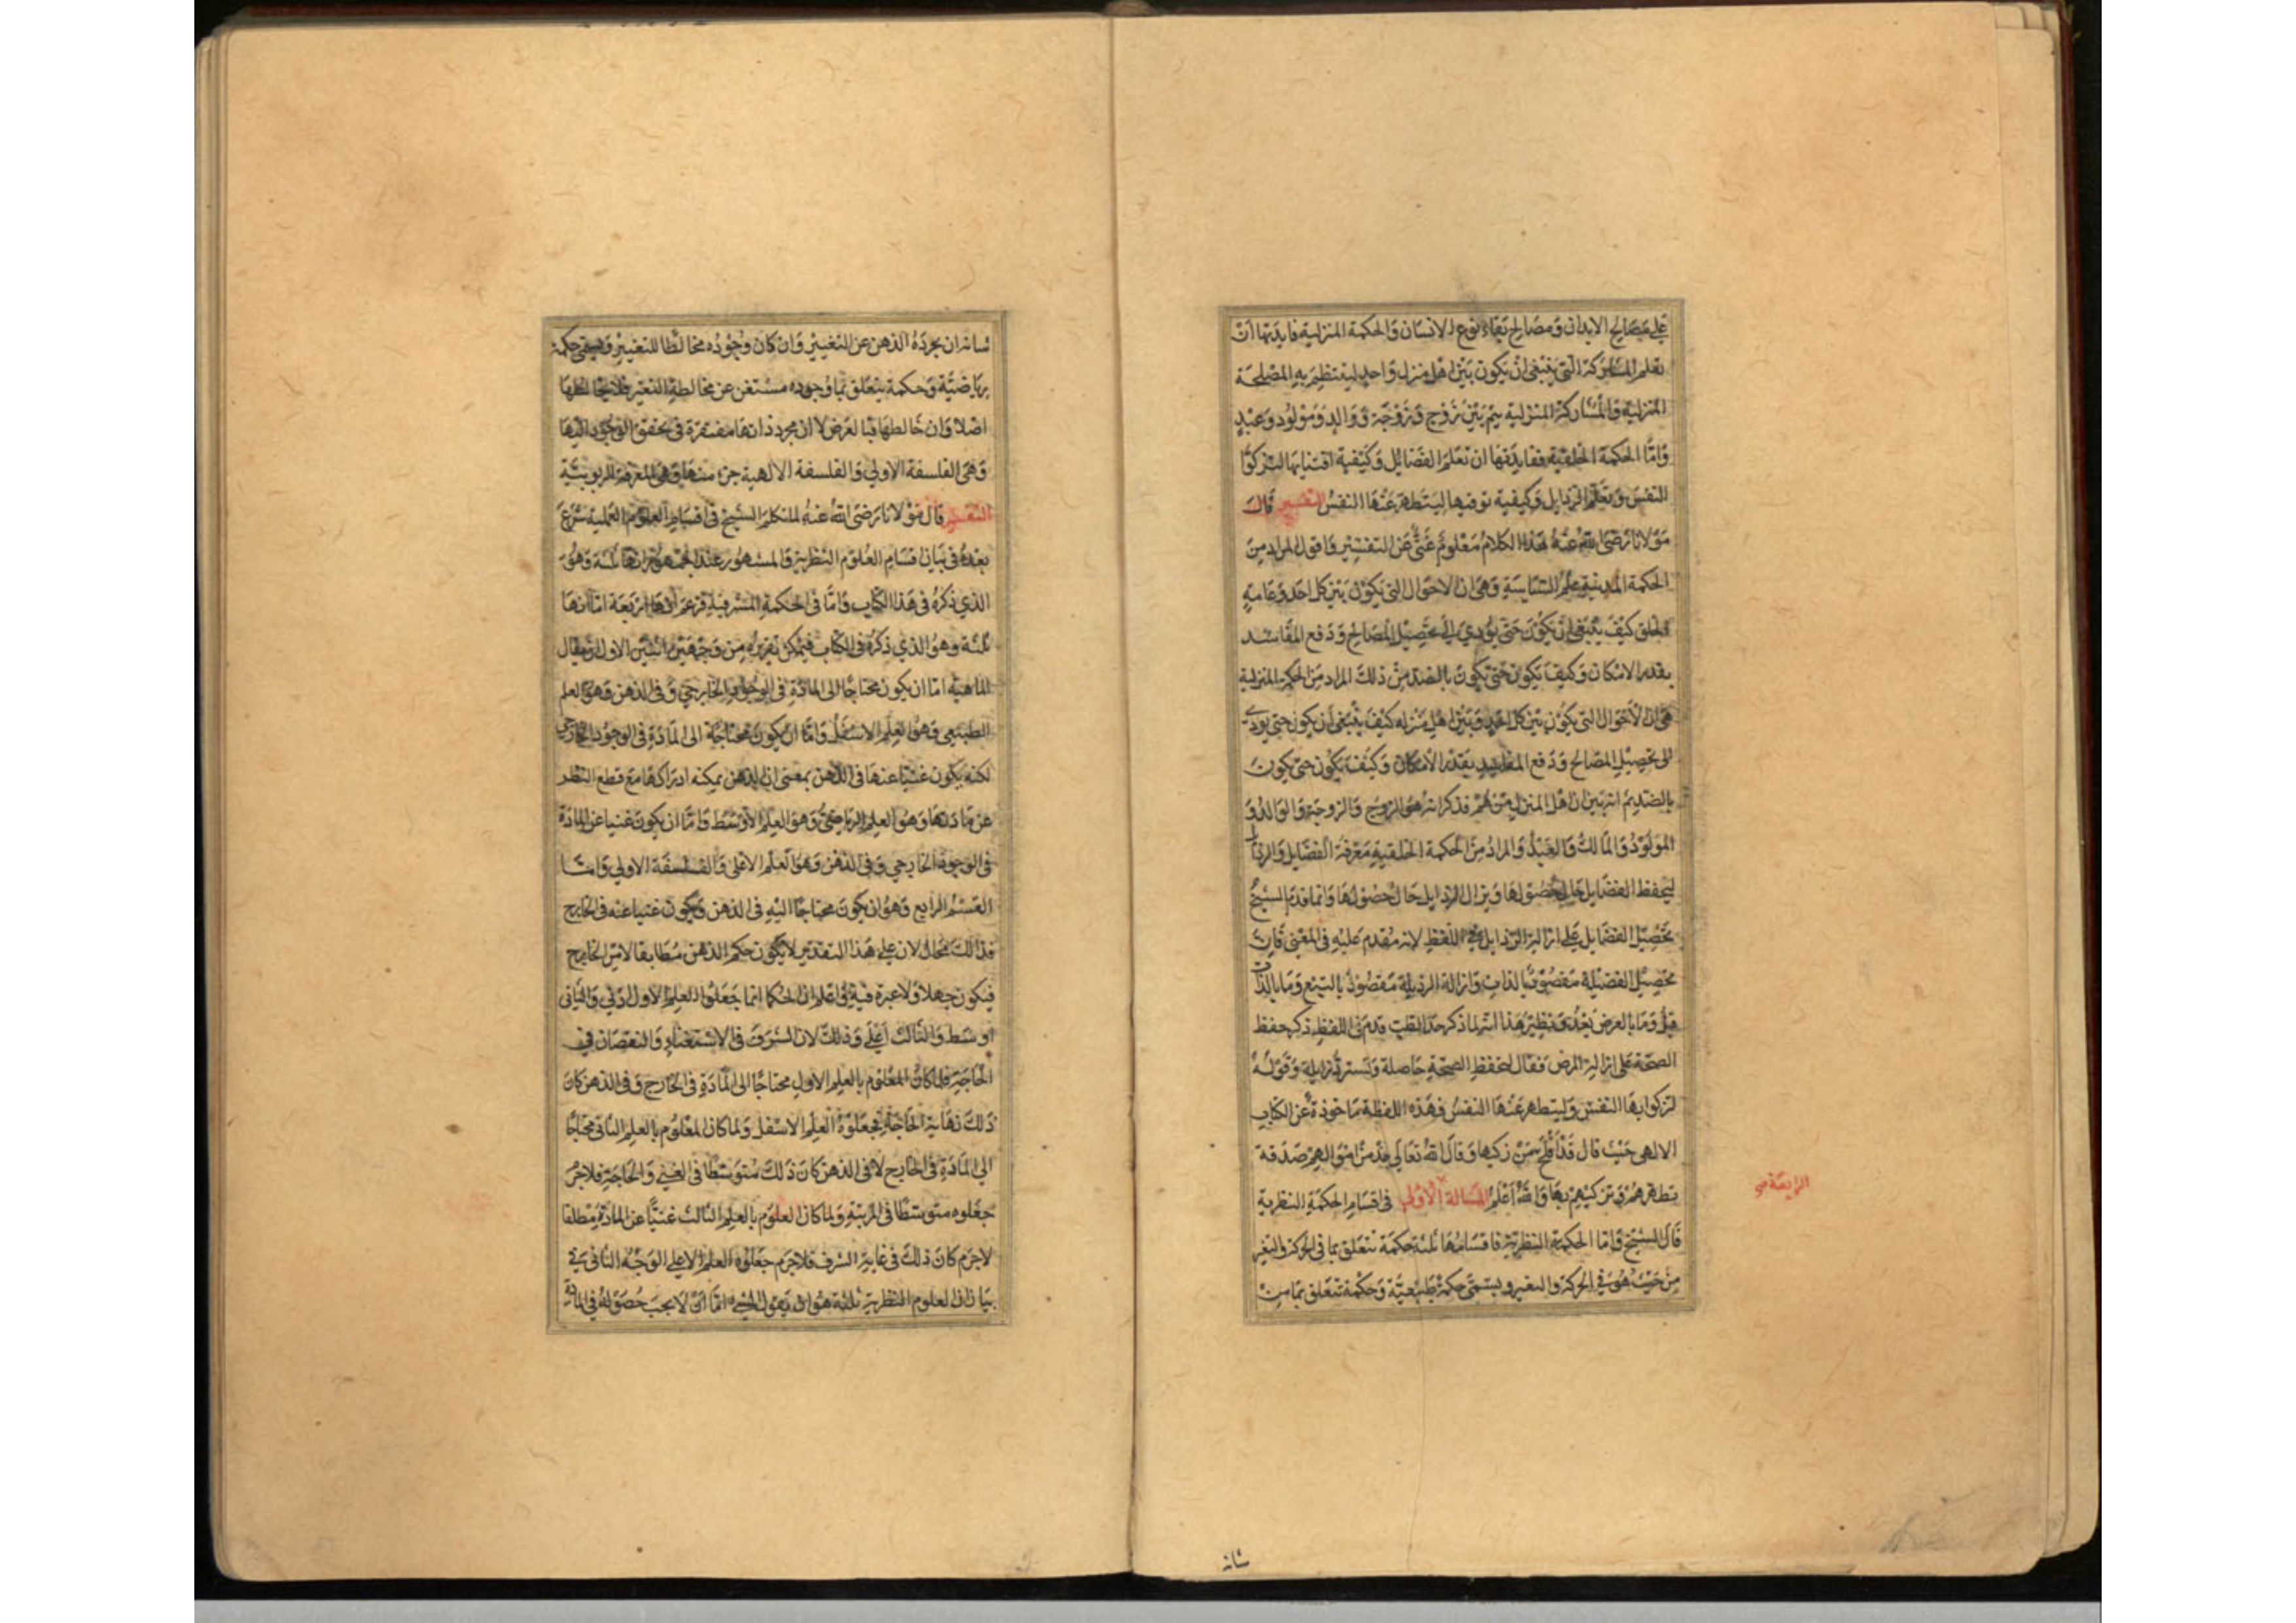 على مصالح الابدان ومصالح بقاء نوع الانسان والحكمة المنزلية فايدتها ان
تعلم المشاركة التى ينبغى ان يكون بين اهل منزل واحد لينتظم به المصلحة
المنزلية والمشاركة المنزلية يتم بين زوج وزوجة ووالد ومولود وعبد
واما الحكمة الخلقية ففايدتها ان تعلم الفضائل وكيفية اقتنايها لتزكوا
النفس وتعلم الرذايل وكيفية توقيها ليتطهر عنها النفس التفسير قال
مولانا رضى الله عنه هذا الكلام معلوم غنى عن التفسير واقول المراد من
الحكمة المدينية علم السياسة وهى ان الاحوال التى يكون بين كل احد وعامة
الخلق كيف ينبغى ان يكون حتى يؤدي الى تحصيل المصالح ودفع المفاسد
بقدر الامكان وكيف يكون حتى يكون بالضد من ذلك المراد من الحكمة المنزلية
هى ان الاحوال التى يكون بين كل احد وبين اهل منزله كيف ينبغى ان يكون حتى يودى
الى تحصيل المصالح ودفع المفاسد بقدر الامكان وكيف يكون حتى يكون
بالضد ثم انه بين ان اهل المنزل من هم فذكر انه هو الزوج والزوجة والوالد و
المولود والمالك والعبد والمراد من الحكمة الخلقية معرفة الفضايل والرذايل
ليحفظ الفضايل حال حصولها ويزال الرذايل حال حصولها وانما قدم الشيخ
تحصيل الفضايل على ازالة الرذايل في اللفظ لانه مقدم عليه فى المعنى فان
تحصيل الفضيلة مقصود بالذات وازالة الرذيلة مقصود بالتبع وما بالذات
قبل وما بالعرض بعد ونظير هذا انه لما ذكر حد الطب قدم فى اللفظ ذكر حفظ
الصحة على ازالة المرض فقال لتحفظ الصحة حاصلة وتسترد زايلة وقوله
لتزكوا بها النفس وليتطهر عنها النفس فهذه اللفظة ماخوذة عن الكتاب
الالهى حيث قال قد افلح من زكيها وقال الله تعالى خذ من اموالهم صدقة
تطهرهم وتزكيهم بها والله اعلم المسالة الاولى فى اقسام الحكمة النظرية
الرابعة
قال الشيخ واما الحكمة النظرية فاقسامها ثلثة حكمة تتعلق بما فى الحركة والتغير
من حيث هو في الحركة والتغير ويسمى حكمة طبيعية وحكمة تتعلق بما من
شانه
شانه ان يجرده الذهن عن التغيير وان كان وجوده مخالطا للتغيير ويسمى حكمة
رياضية وحكمة يتعلق بما وجوده مستغن عن مخالطة التغير فلا يخالطها
اصلا وان خالطها فبالعرض لا ان مجرد ذاتها مفتقرة فى تحقق الوجود اليها
وهى الفلسفة الاولى والفلسفة الالهية جزء منها وهى المعرفة الربوبية
التفسير قال مولانا رضى الله عنه لما تكلم الشيخ فى اقسام العلوم العملية شرع
بعده فى بيان اقسام العلوم النظرية والمشهور عند الجمهور انها ثلثة وهو
الذي ذكره فى هذا الكتاب واما فى الحكمة المشرقية فزعم انها اربعة اما انها
ثلثة وهو الذي ذكره فى الكتاب فيمكن تقريره من وجهين اثنين الاول ان يقال
الماهية اما ان يكون محتاجا الى المادة فى الوجود الخارجي وفى الذهن وهو العلم
الطبيعى وهو العلم الاسفل واما ان يكون محتاجة الى المادة فى الوجود الخارجى
لكنه يكون غنيا عنها فى الذهن بمعنى ان الذهن يمكنه ادراكها مع قطع النظر
عن مادتها وهو العلم الرياضى وهو العلم الاوسط واما ان يكون غنيا عن المادة
فى الوجود الخارجي وفى الذهن وهو العلم الاعلى والفلسفة الاولى واما
القسم الرابع وهو ان يكون محتاجا اليه فى الذهن ويكون غنيا عنه فى الخارج
فذالك محال لان على هذا التقدير لا يكون حكم الذهن مطابقا لامر الخارج
فيكون جهلا ولا عبرة فيه واعلم ان الحكما انما جعلوا العلم الاول ادنى والثانى
اوسط والثالث اعلى وذلك لان الشرف فى الاستغناء والنقصان فى
الحاجة فلما كان المعلوم بالعلم الاول محتاجا الى المادة فى الخارج وفى الذهن كان
ذلك نهاية الحاجة فجعلوه العلم الاسفل ولما كان المعلوم بالعلم الثانى محتاجا
الى المادة فى الخارج لا فى الذهن كان ذلك متوسطا فى الغنى والحاجة فلا جرم
جعلوه متوسطا فى المرتبة ولما كان المعلوم بالعلم الثالث غنيا عن المادة مطلقا
لا جرم كان ذلك فى غاية الشرف فلا جرم جعلوه العلم الاعلى الوجه الثانى فى
بيان ان العلوم النظرية ثلثة هو ان يقول الشئ اما ان لا يجب حصوله فى المادة